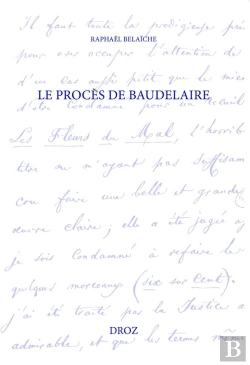 Il faut toute la prodigieuse
pour oser occuper l'attention de
d'un cas aussi petit que le mien
d'être condamné pour un recueil
RAPHAËL BELAÏCHE
LE PROCÈS DE BAUDELAIRE
Les Fleurs du Mal, l'horrible
titre ne m'ayant pas suffisam
con faire une belle et grande
œuvre claire ; elle a été jugée
je suis condamné à refaire le
quelques morceaux (six sur cent).
j'ai été traité par la Justice a
admirable, et que les termes même
DROZ
B